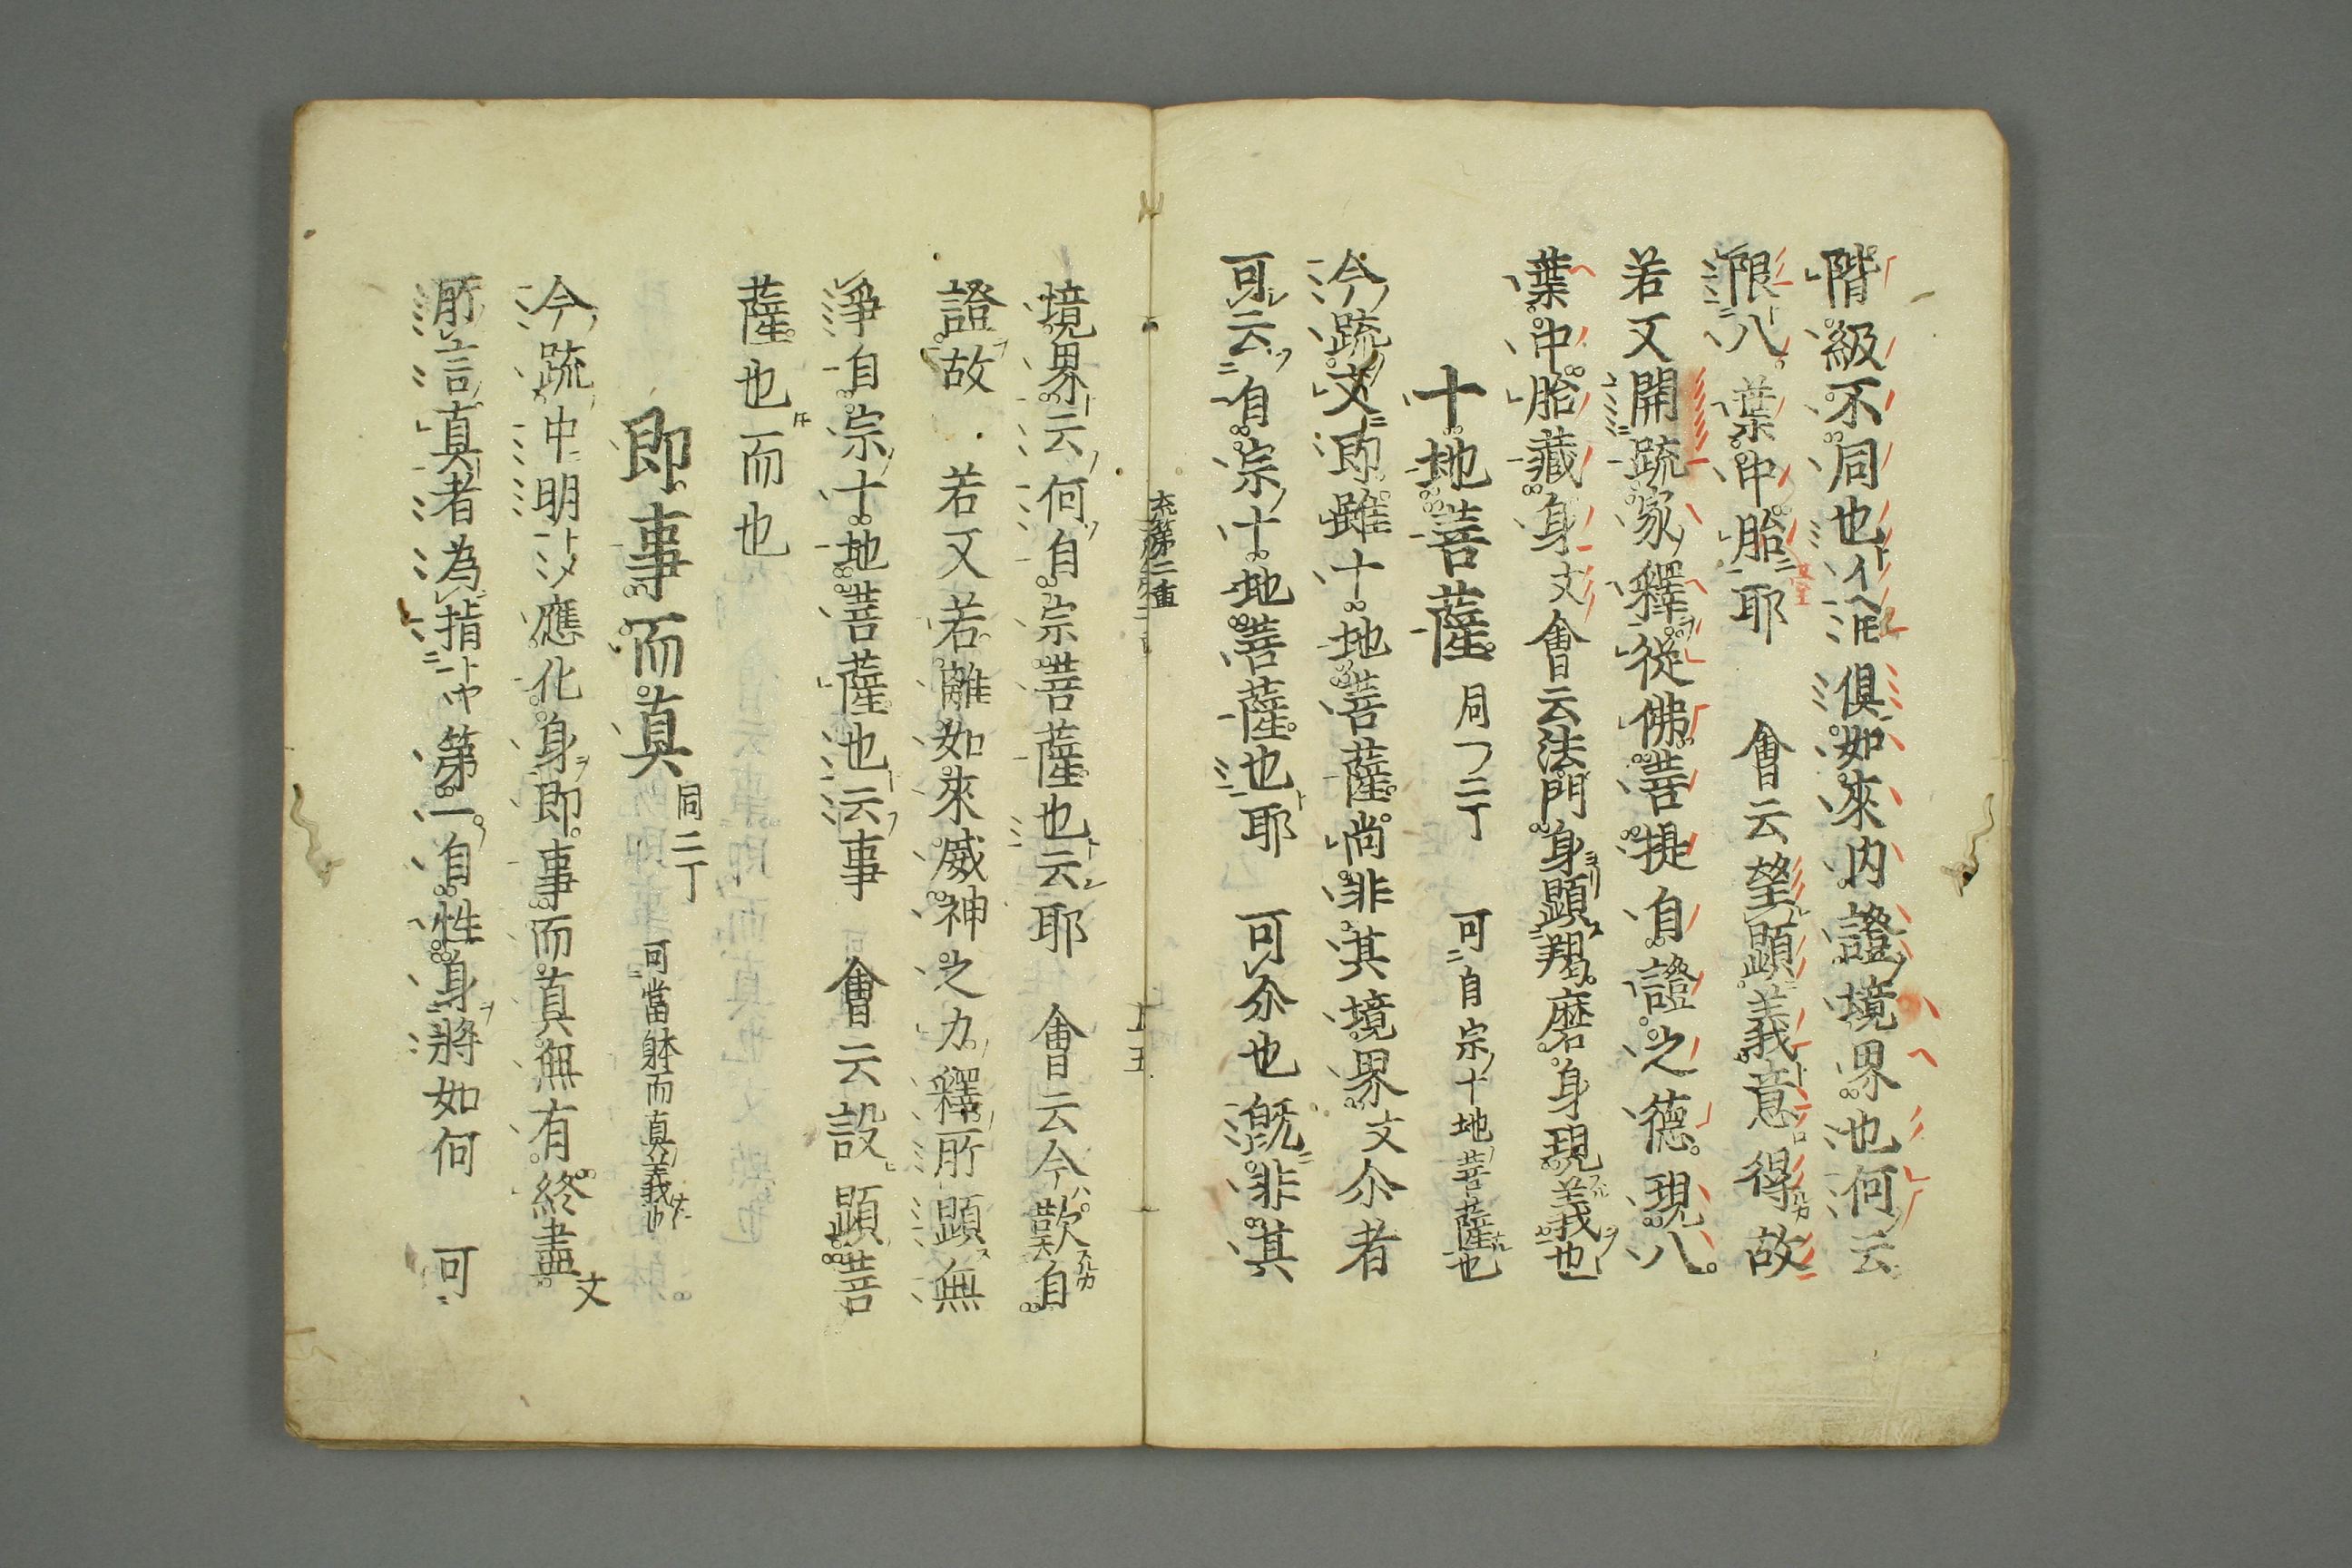 階級不同也 俱如來内證境界也何云
限八葉中胎耶 會云瑩顕義意得故
若又開䟽家釋從佛菩提自證之德現八
葉中胎藏身文會云法門身顕羯磨身現義也
十地菩薩 同二丁 可自宗十地菩薩也
今䟽文即雖十地菩薩尚非其境界文尒者
可云自宗十地菩薩也耶 可尒也既非其
大第二重 十五
境界云何自宗菩薩也云耶 會云今歎自
證故 若又若離如來威神之力釋所顕無
諍自宗十地菩薩也云事 會云設顕菩
薩也而也
即事而真 同二丁 可當躰而真義
今䟽中明 應化身即事而真無有終盡文
所言真者為指 第一自性身將如何 可